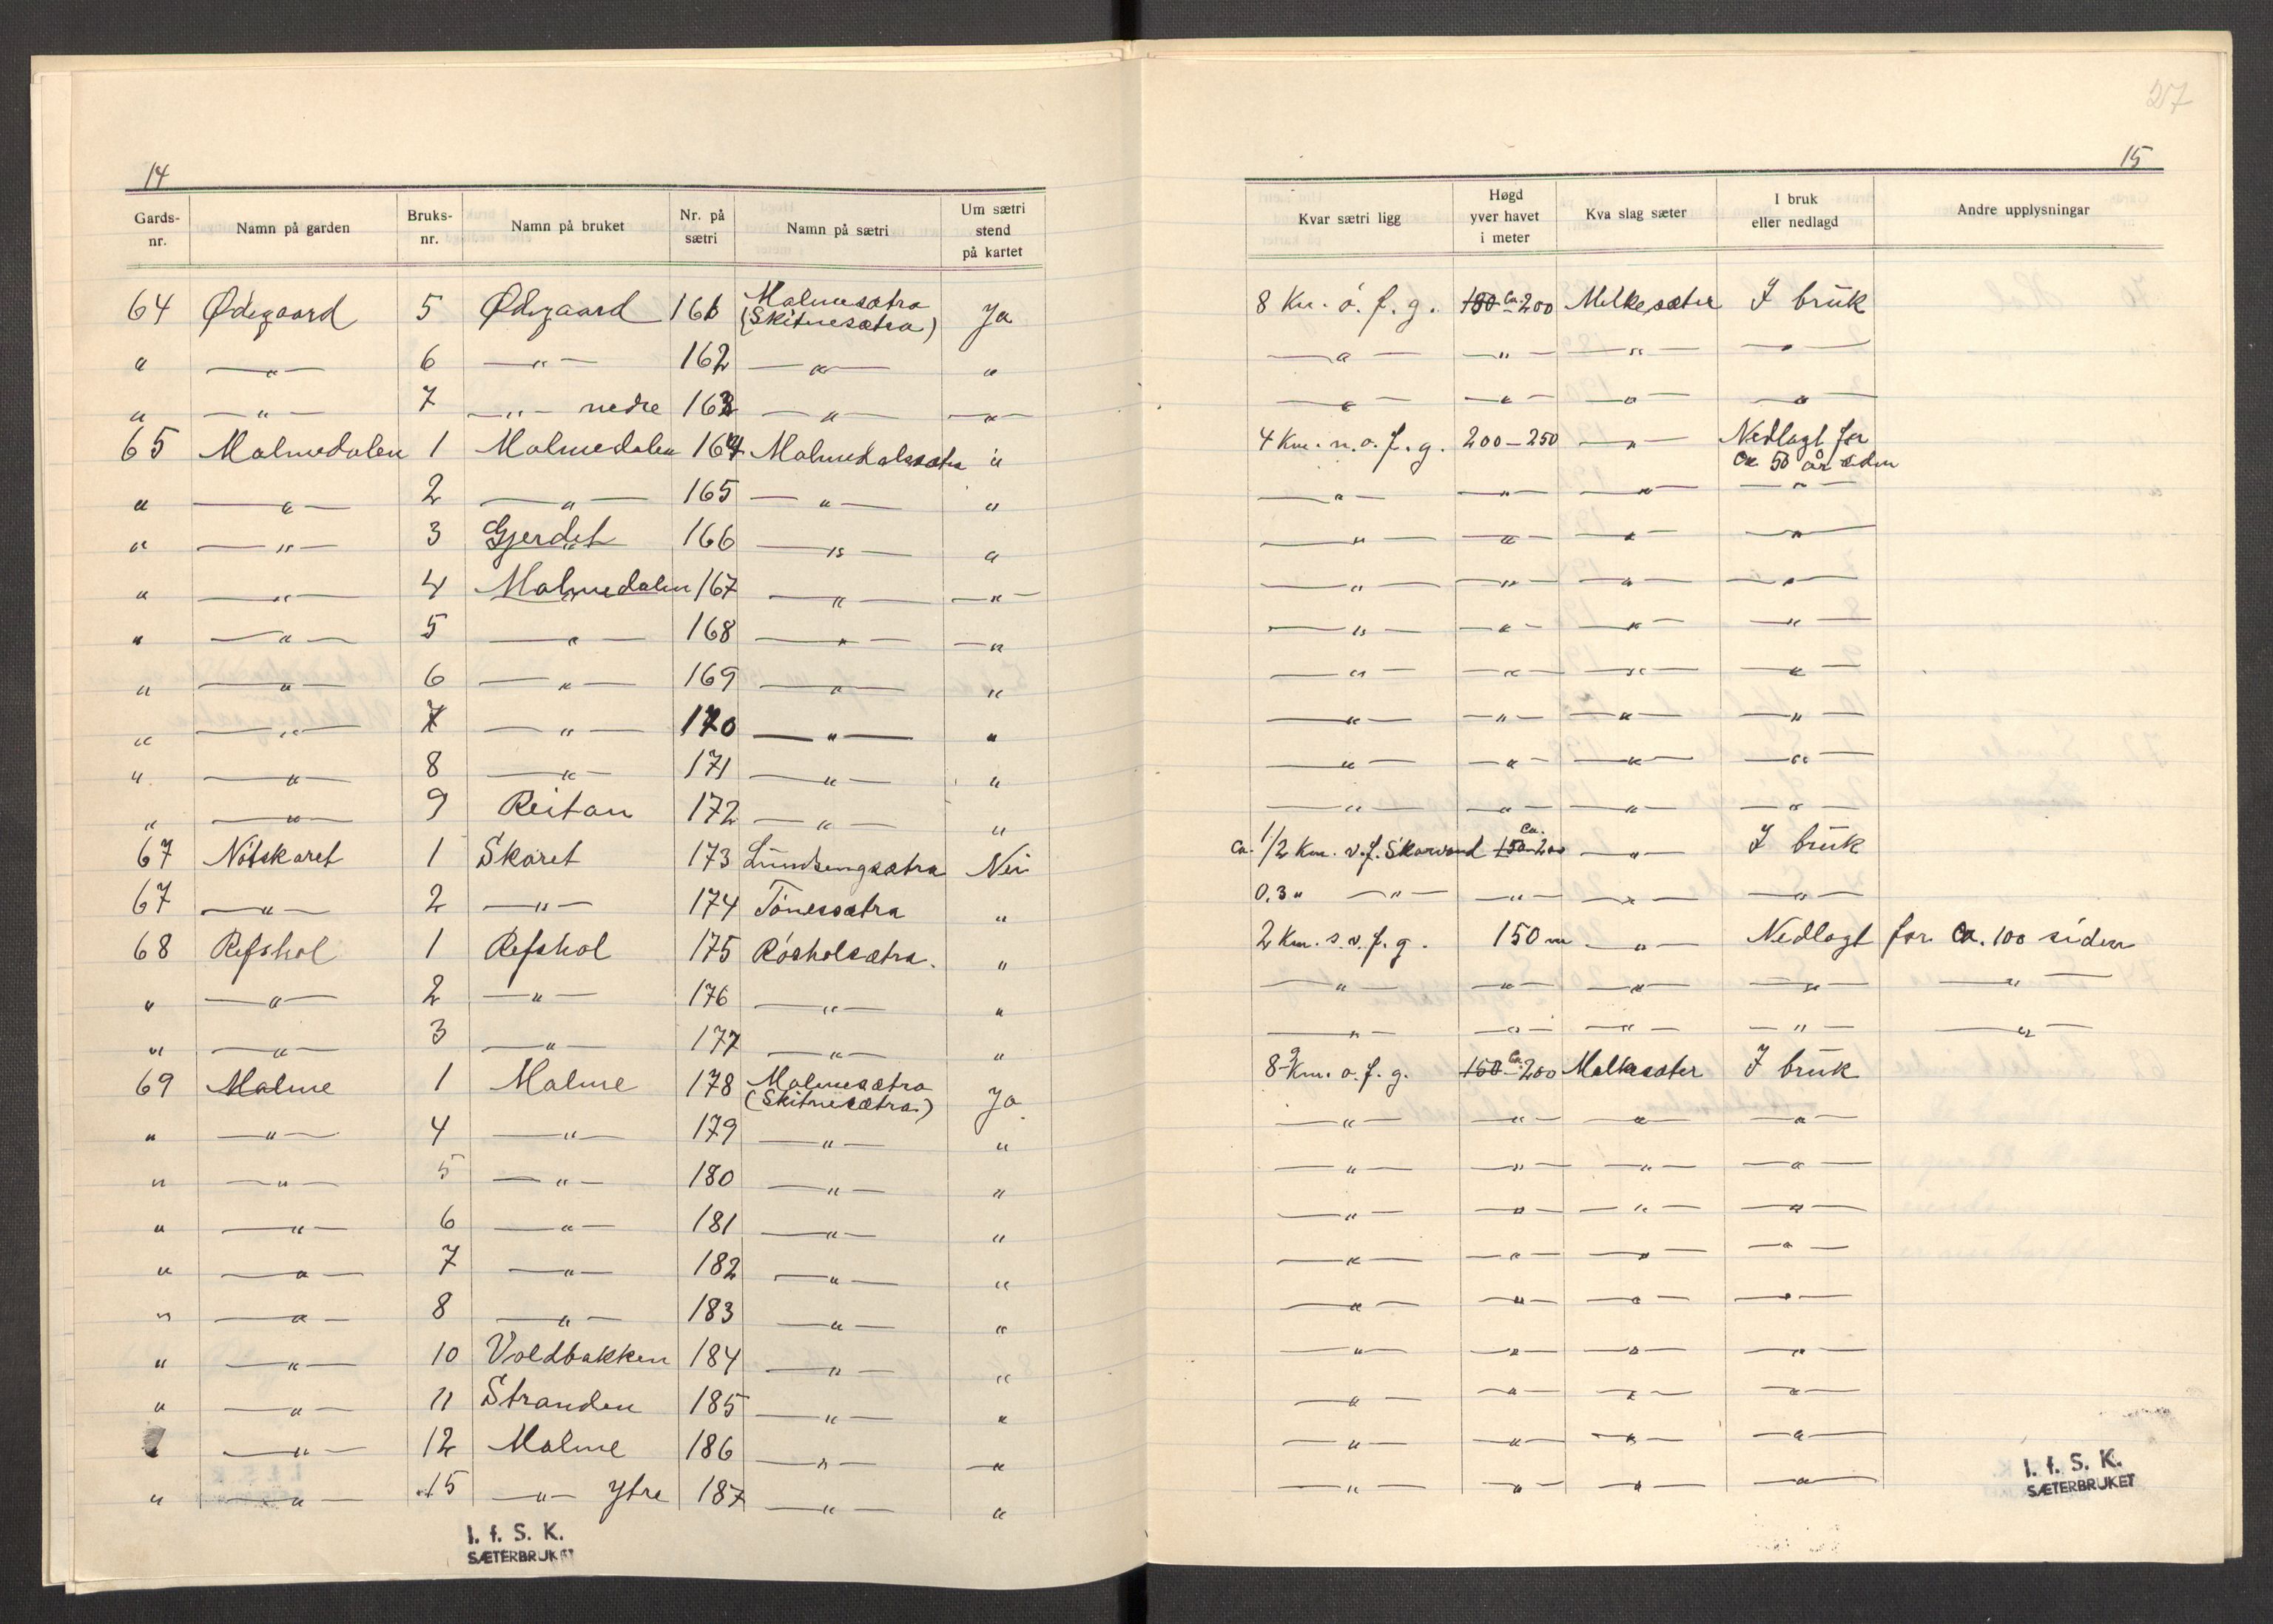 14
Gards-nr. Namn på garden Bruks-nr. Namn på bruket Nr. på sætri Namn på sætri Um sætri stend på kartet
64 Ødegaard 5 Ødegaard 161 Malmesætra (Skitnesætra) Ja
" —"— 6 —"— 162 —"— "
" —"— 7 —"— nedre 163 —"— —"—
65 Malmedalen 1 Malmedalen 164 Malmedalssætra "
" —"— 2 —"— 165 —"— "
" —"— 3 Gjerdet 166 —"— "
" —"— 4 Malmedalen 167 —"— —"—
" —"— 5 —"— 168 —"— —"
" —"— 6 —"— 169 —"— "
" —"— 7 —"— 170 —"— "
" —"— 8 —"— 171 —"— "
" —"— 9 Reitan 172 —"— "
67 Nótskaret 1 Skaret 173 Lundengsætra Nei
67 —"— 2 —"— 174 Tónessætra "
68 Refshol 1 Refshol 175 Rósholsætra. "
" —"— 2 —"— 176 —"— "
" —"— 3 —"— 177 —"— "
69 Malme 1 Malme 178 Malmesætra (Skitnesætra) Ja
" —"— 4 —"— 179 —"— "
" —"— 5 —"— 180 —"— "
" —"— 6 —"— 181 —"— "
" —"— 7 —"— 182 —"— "
" —"— 8 —"— 183 —"— "
" —"— 10 Voldbakken 184 —"— "
" —"— 11 Stranden 185 —"— "
—"— 12 Malme 186 —"— —"
" —"— 15 —"— Ytre 187 —"— "
I. f. S. K.
SÆTERBRUKET
27
15
Kvar sætri ligg Høgd yver havet i meter Kva slag sæter I bruk eller nedlagd Andre upplysningar
8 Km. ó. f. g. 180 Ca. 200 Melkesæter I brúk
—"— —"— —"— —"—
—"— —"— —"— —"—
4 Km. n. o. f. g. 200-250 —"— Nedlagt for Ca 50 år siden
—"— —"— —"— —"—
—"— —"— —"— —"—
—"— —"— —"— —"—
—"— —"— —"— —"—
—"— —"— —"— —"—
—"— —"— —"— —"—
—"— —"— —"— —"—
—"— —"— —"— —"—
Ca. 1/2 Km. v. f. Skarvand 150 Ca. 200 —"— I brúk
0,3 " —"— —"— —"— —"—
2 Km. s. v. f. g. 150 m —"— Nedlagt for Ca. 100 siden
—"— —"— —"— —"— —"—
—"— —"— —"— —"— —"—
8-9 Km. o. f. g. 150 Ca. 200 Melkesæter I brúk
—"— —"— —"— —"—
—"— —"— —"— —"—
—"— —"— —"— —"—
—"— —"— —"— —"—
—"— —"— —"— —"—
—"— —"— —"— —"—
—"— —"— —"— —"—
—"— —"— —"— —"—
—"— —"— —"— —"—
I. f. S. K.
SÆTERBRUKET